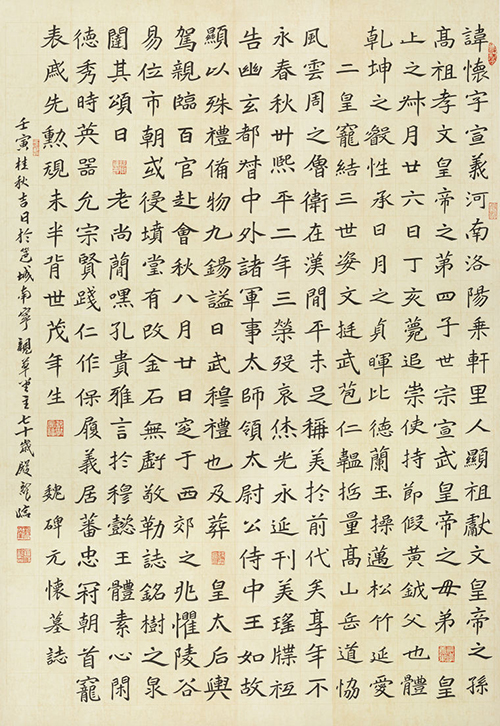 諱懷字宣義河南洛陽乘軒里人顯祖獻文皇帝之孫
高祖孝文皇帝之第四子世宗宣武皇帝之母弟 皇
上之叔月廿六日丁亥薨追崇使持節假黃鉞父也體
乾坤之叡性承日月之貞暉比德蘭玉操邁松竹延愛
二皇寵結三世姿文挺武苞仁韞哲量高山岳道協
風雲周之魯衛在漢間平未足稱美於前代矣享年不
永春秋卅熙平二年三榮歿哀休光永延刊美瑤牒祇
告幽玄都督中外諸軍事太師領太尉公侍中王如故
顯以殊禮備物九錫謚曰武穆禮也及葬 皇太后輿
駕親臨百官赴會秋八月廿日窆于西郊之兆懼陵谷
易位市朝或侵墳塋有改金石無虧敬勒誌銘樹之泉
闥其頌曰 老尚簡嘿孔貴雅言於穆懿王體素心閑
德秀時英器允宗賢踐仁作保履義居蕃忠冠朝首寵
表戚先勳規未半背世茂年生 魏碑元懷墓誌
壬寅桂秋吉日於邕城南寧觀草堂主七十歲臨